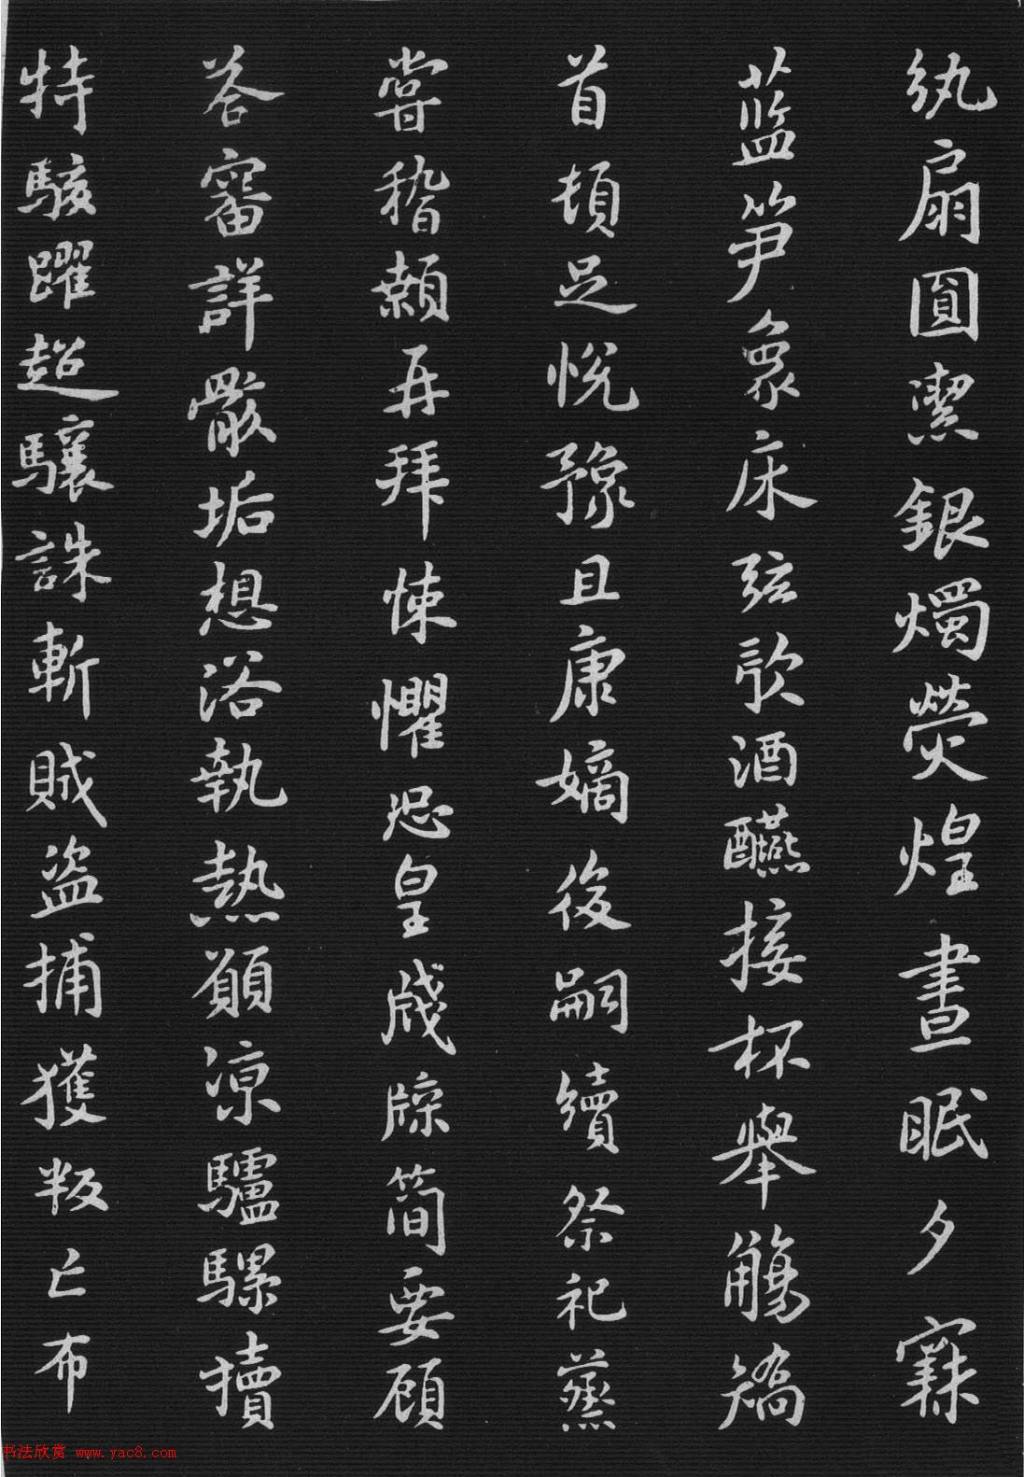 紈扇圓潔銀燭熒煌晝眠夕寐
藍笋象床弦歌酒讌接杯舉觴矯
首頓足悅豫且康嫡後嗣續祭祀蒸
嘗稽顙再拜悚懼恐皇牋牒簡要顧
答審詳骸垢想浴執熱願凉驢騾犢
特駭躍超驤誅斬賊盜捕獲叛亡布
书法欣赏 www.yac8.com